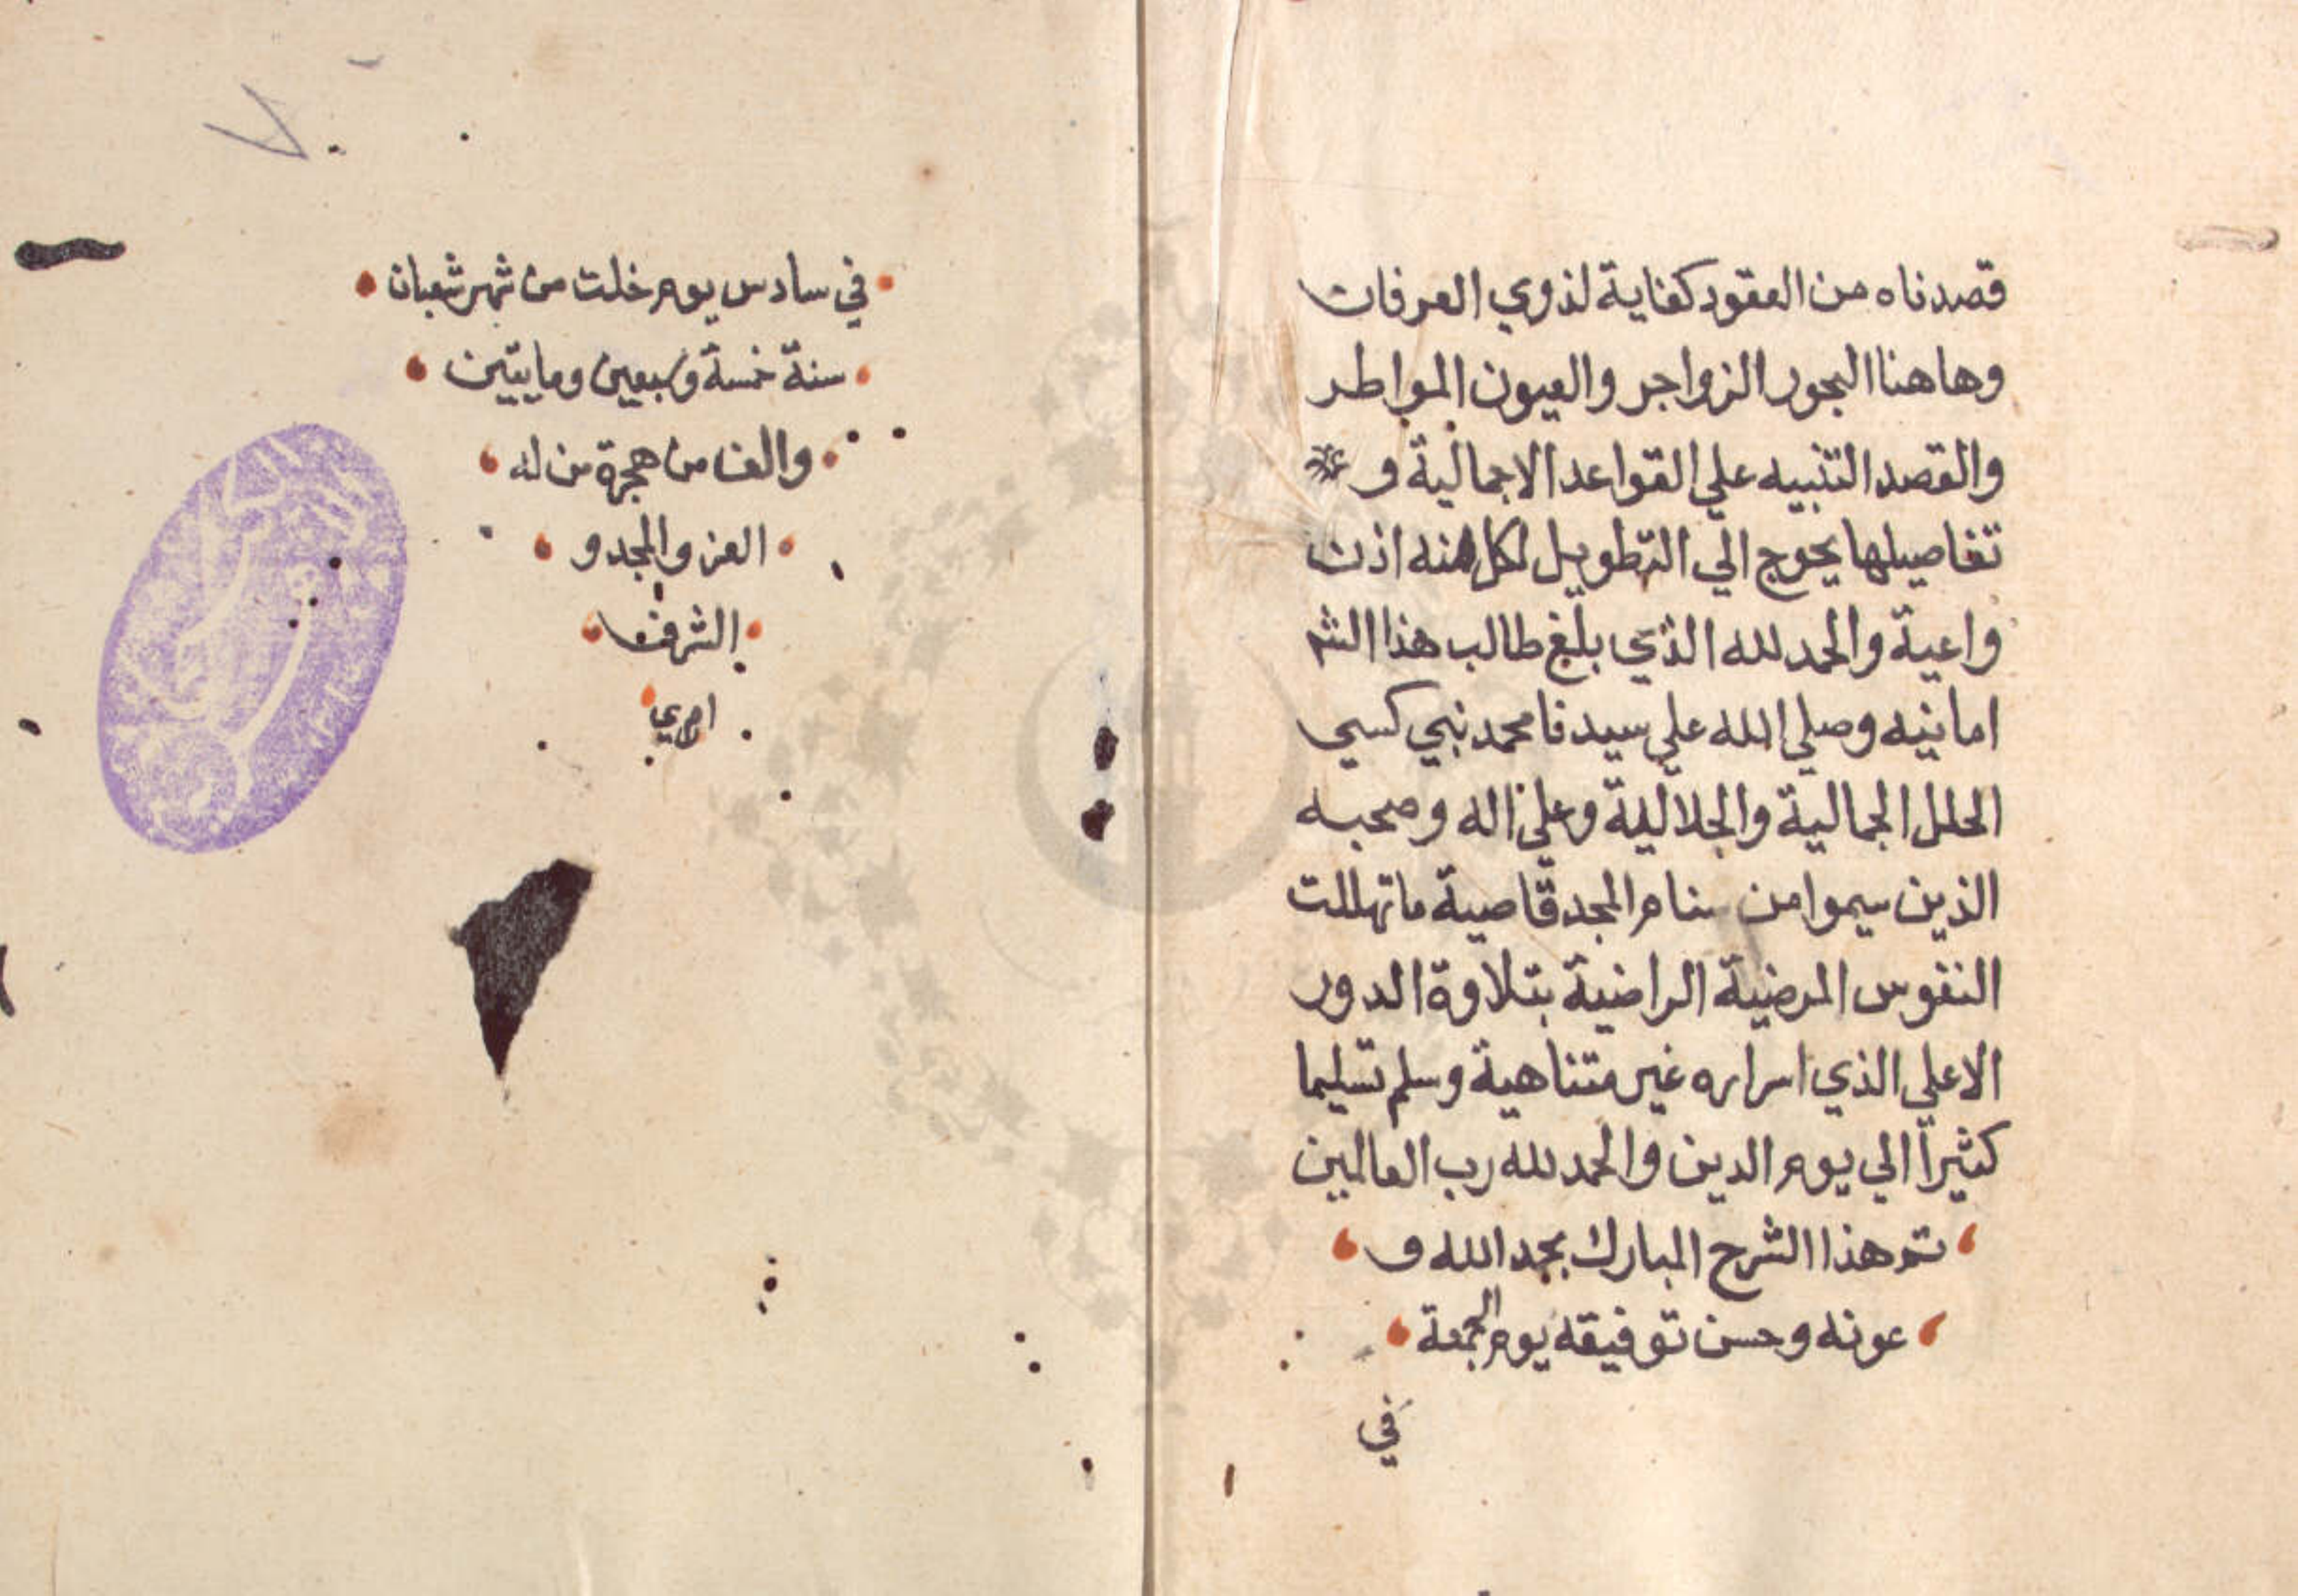 قصدناه من العقود كفاية لذوي العرفات
وهاهنا البحور الزواجر والعيون المواطر
والقصد التنبيه علي القواعد الاجمالية و
تفاصيلها يحوج الي التطويل لكل منه اذن
واعية والحمد لله الذي بلغ طالب هذا الشر
امانيه وصلي الله علي سيدنا محمد نبي كسي
الحلل الجمالية والجلالية وعلي اله وصحبه
الذين سموا من سنام المجد قاصية ماتهللت
النفوس المرضية الراضية بتلاوة الدور
الاعلي الذي اسراره غير متناهية وسلم تسليما
كثيرا الي يوم الدين والحمد لله رب العالمين
تم هذا الشرح المبارك بحمد الله و
عونه وحسن توفيقه يوم الجمعة
في
في سادس يوم خلت من شهر شعبان
سنة خمسة وسبعين ومايتين
والف من هجرة من له
العز والمجد و
الشرف